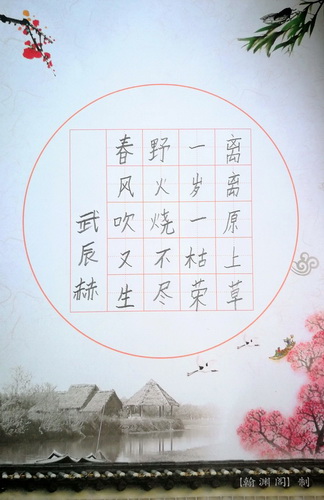 离离原上草
一岁一枯荣
野火烧不尽
春风吹又生
武辰赫
【翰渊阁】制